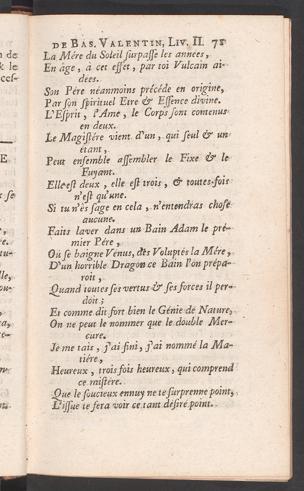 DE BAS. VALENTIN, LIV. II. 75
La Mére du Soleil surpasse les années,
En âge, à cet effet, par toi Vulcain ai-
dées.
Son Pére néanmoins précéde en origine,
Par son spirituel Etre & Essence divine.
L'Esprit, l'Ame, le Corps sont contenus
en deux.
Le Magistére vient d'un, qui seul & un
étant,
Peut ensemble assembler le Fixe & le
Fuyant.
Elle est deux, elle est trois, & toutes-fois
n'est qu'une.
Si tu n'és sage en cela, n'entendras chose
aucune.
Faits laver dans un Bain Adam le pré-
mier Pére,
Où se baigne Venus, des Voluptés la Mére,
D'un horrible Dragon ce Bain l'on prépa-
roit,
Quand toutes ses vertus & ses forces il per-
doit;
Et comme dit fort bien le Génie de Nature,
On ne peut le nommer que le double Mer-
cure.
Je me tais, j'ai fini, j'ai nommé la Ma-
tiére,
Heureux, trois fois heureux, qui comprend
ce mistére.
Que le soucieux ennuy ne te surprenne point,
L'issue te fera voir ce tant désiré point.